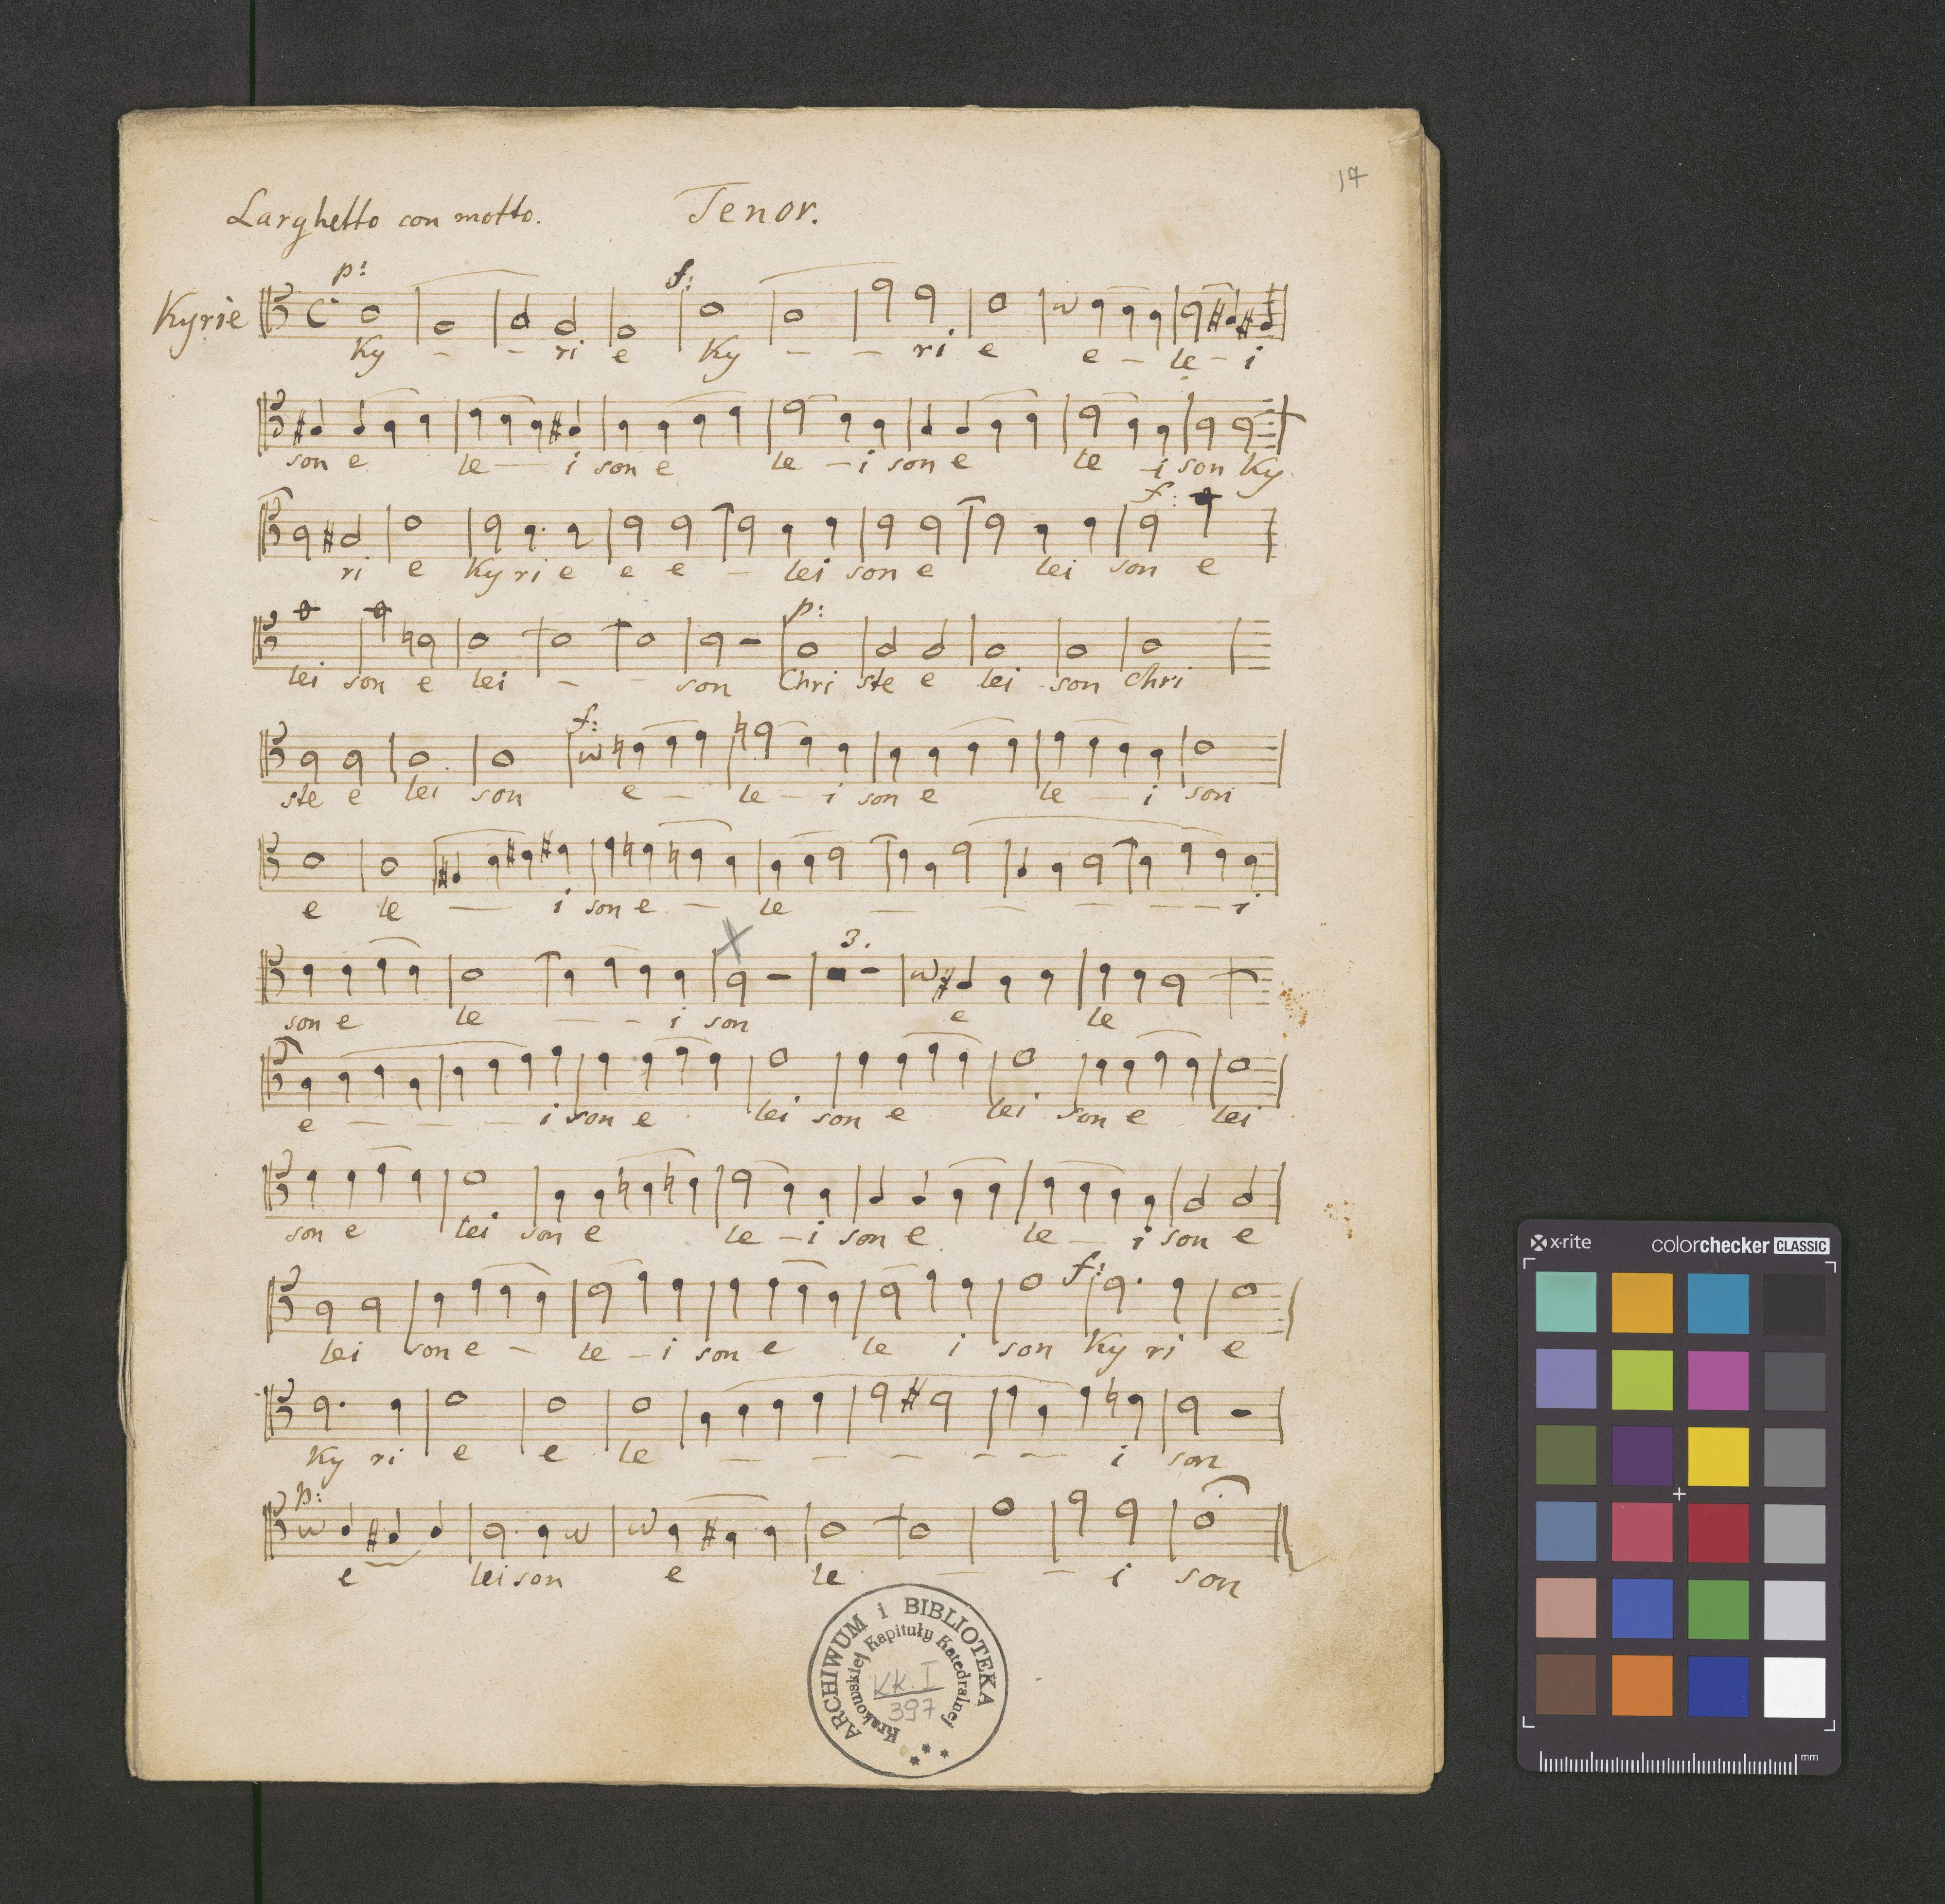 17
Larghetto con motto. Tenor.
p: f:
Kyrie Ky - - ri e Ky - - ri e e - le - i
son e le - i son e le - i son e le - i son Ky
f:
ri e Ky ri e e e - lei son e lei son e
p:
lei son e lei - - son Chri ste e lei son Chri
f:
ste e lei son e - le - i son e le - i son
e le - i son e - le - - - - - i
3.
son e le - - i son e le
e - - - - i son e lei son e lei son e lei
son e lei son e le - i son e le - i son e
f:
lei son e - le - i son e le i son Ky ri e
Ky ri e e le - - - - - i son
p:
e lei son e le - - i son
ARCHIWUM i BIBLIOTEKA
Krakowskiej Kapituły Katedralnej
KK. I
397
x·rite colorchecker CLASSIC
mm